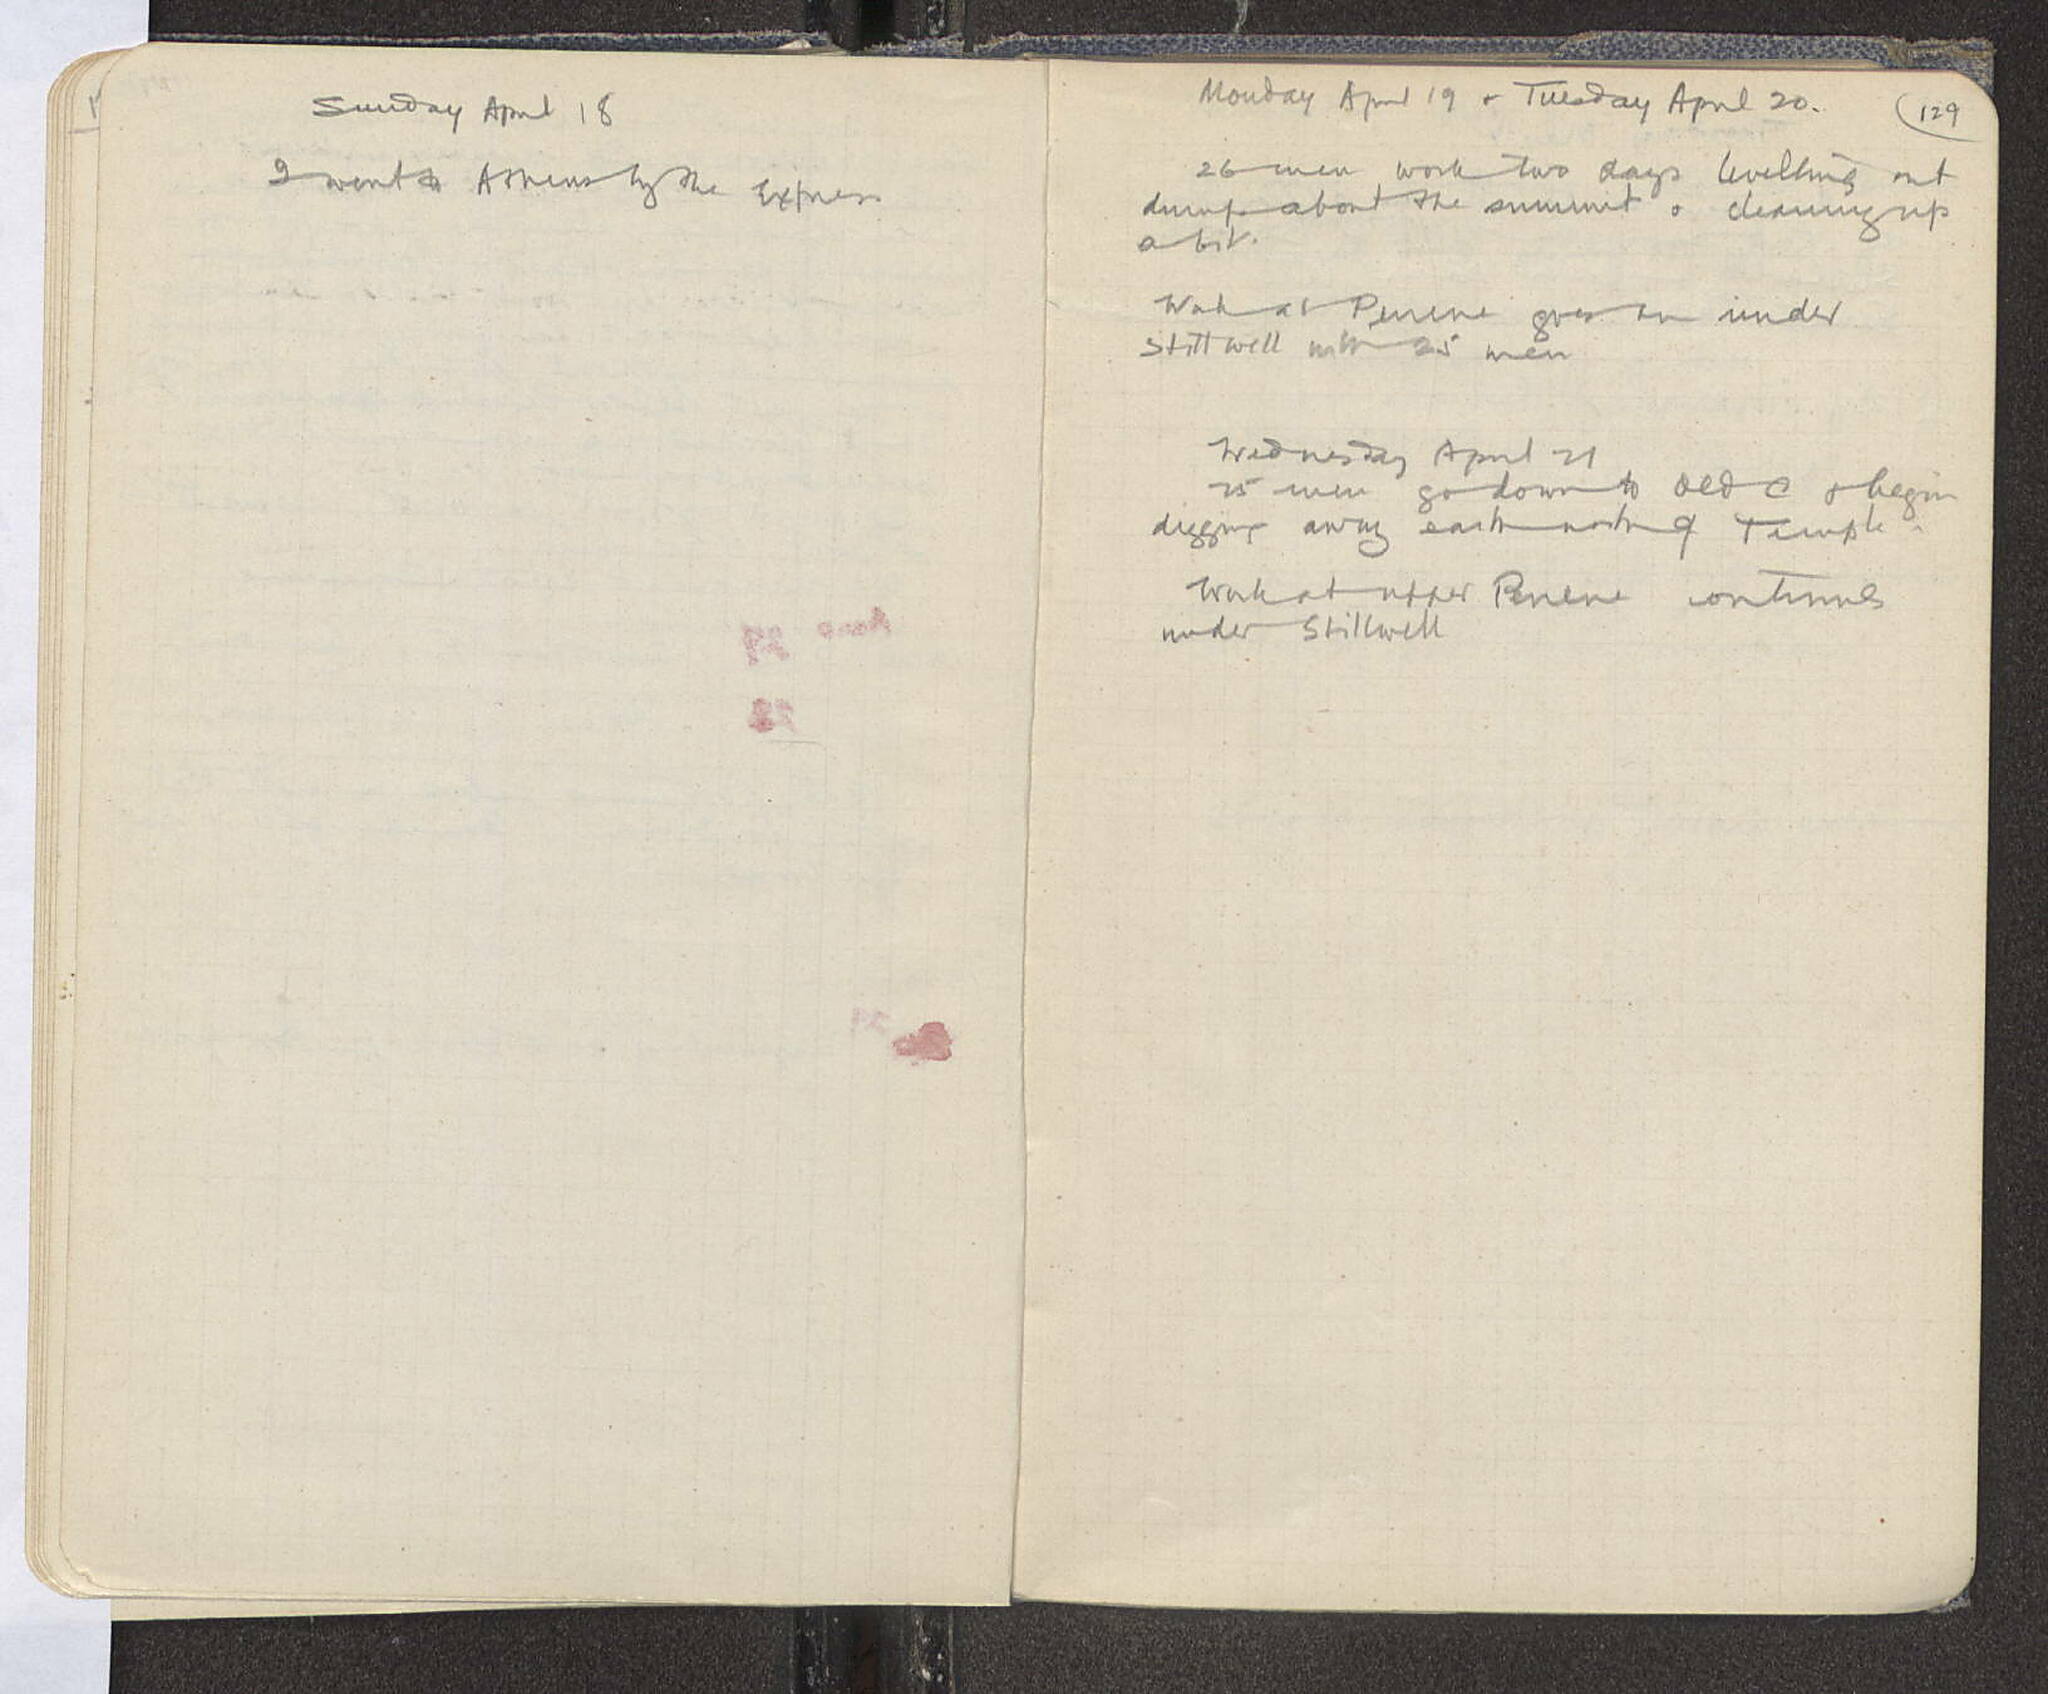 Sunday April 18
I went to Athens by the Express
Monday April 19 & Tuesday April 20.
129
26 men work two days levelling out
dump about the summit & cleaning up
a bit.
Work at Pirene goes on under
Stillwell with 25 men
Wednesday April 21
25 men go down to Old C & begin
digging away earth north of Temple.
Work at upper Pirene continues
under Stillwell